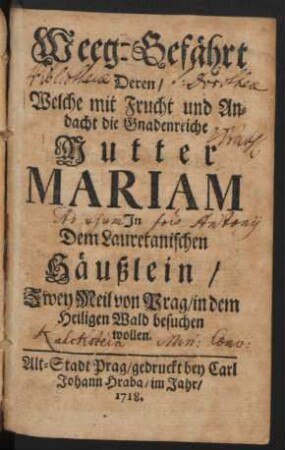 Weeg-Gefährt
Bibliothecae S. Dorotheae
Deren/
Welche mit Frucht und An-
dacht die Gnadenreiche
Mutter
MARIAM
Ad usum In Antonij
Dem Lauretanischen
Häußlein /
Zwey Meil von Prag/ in dem
Heiligen Wald besuchen
wollen.
Kalckstein Min: Conv:
Alt-Stadt Prag/ gedruckt bey Carl
Johann Hraba/ im Jahr/
1718.